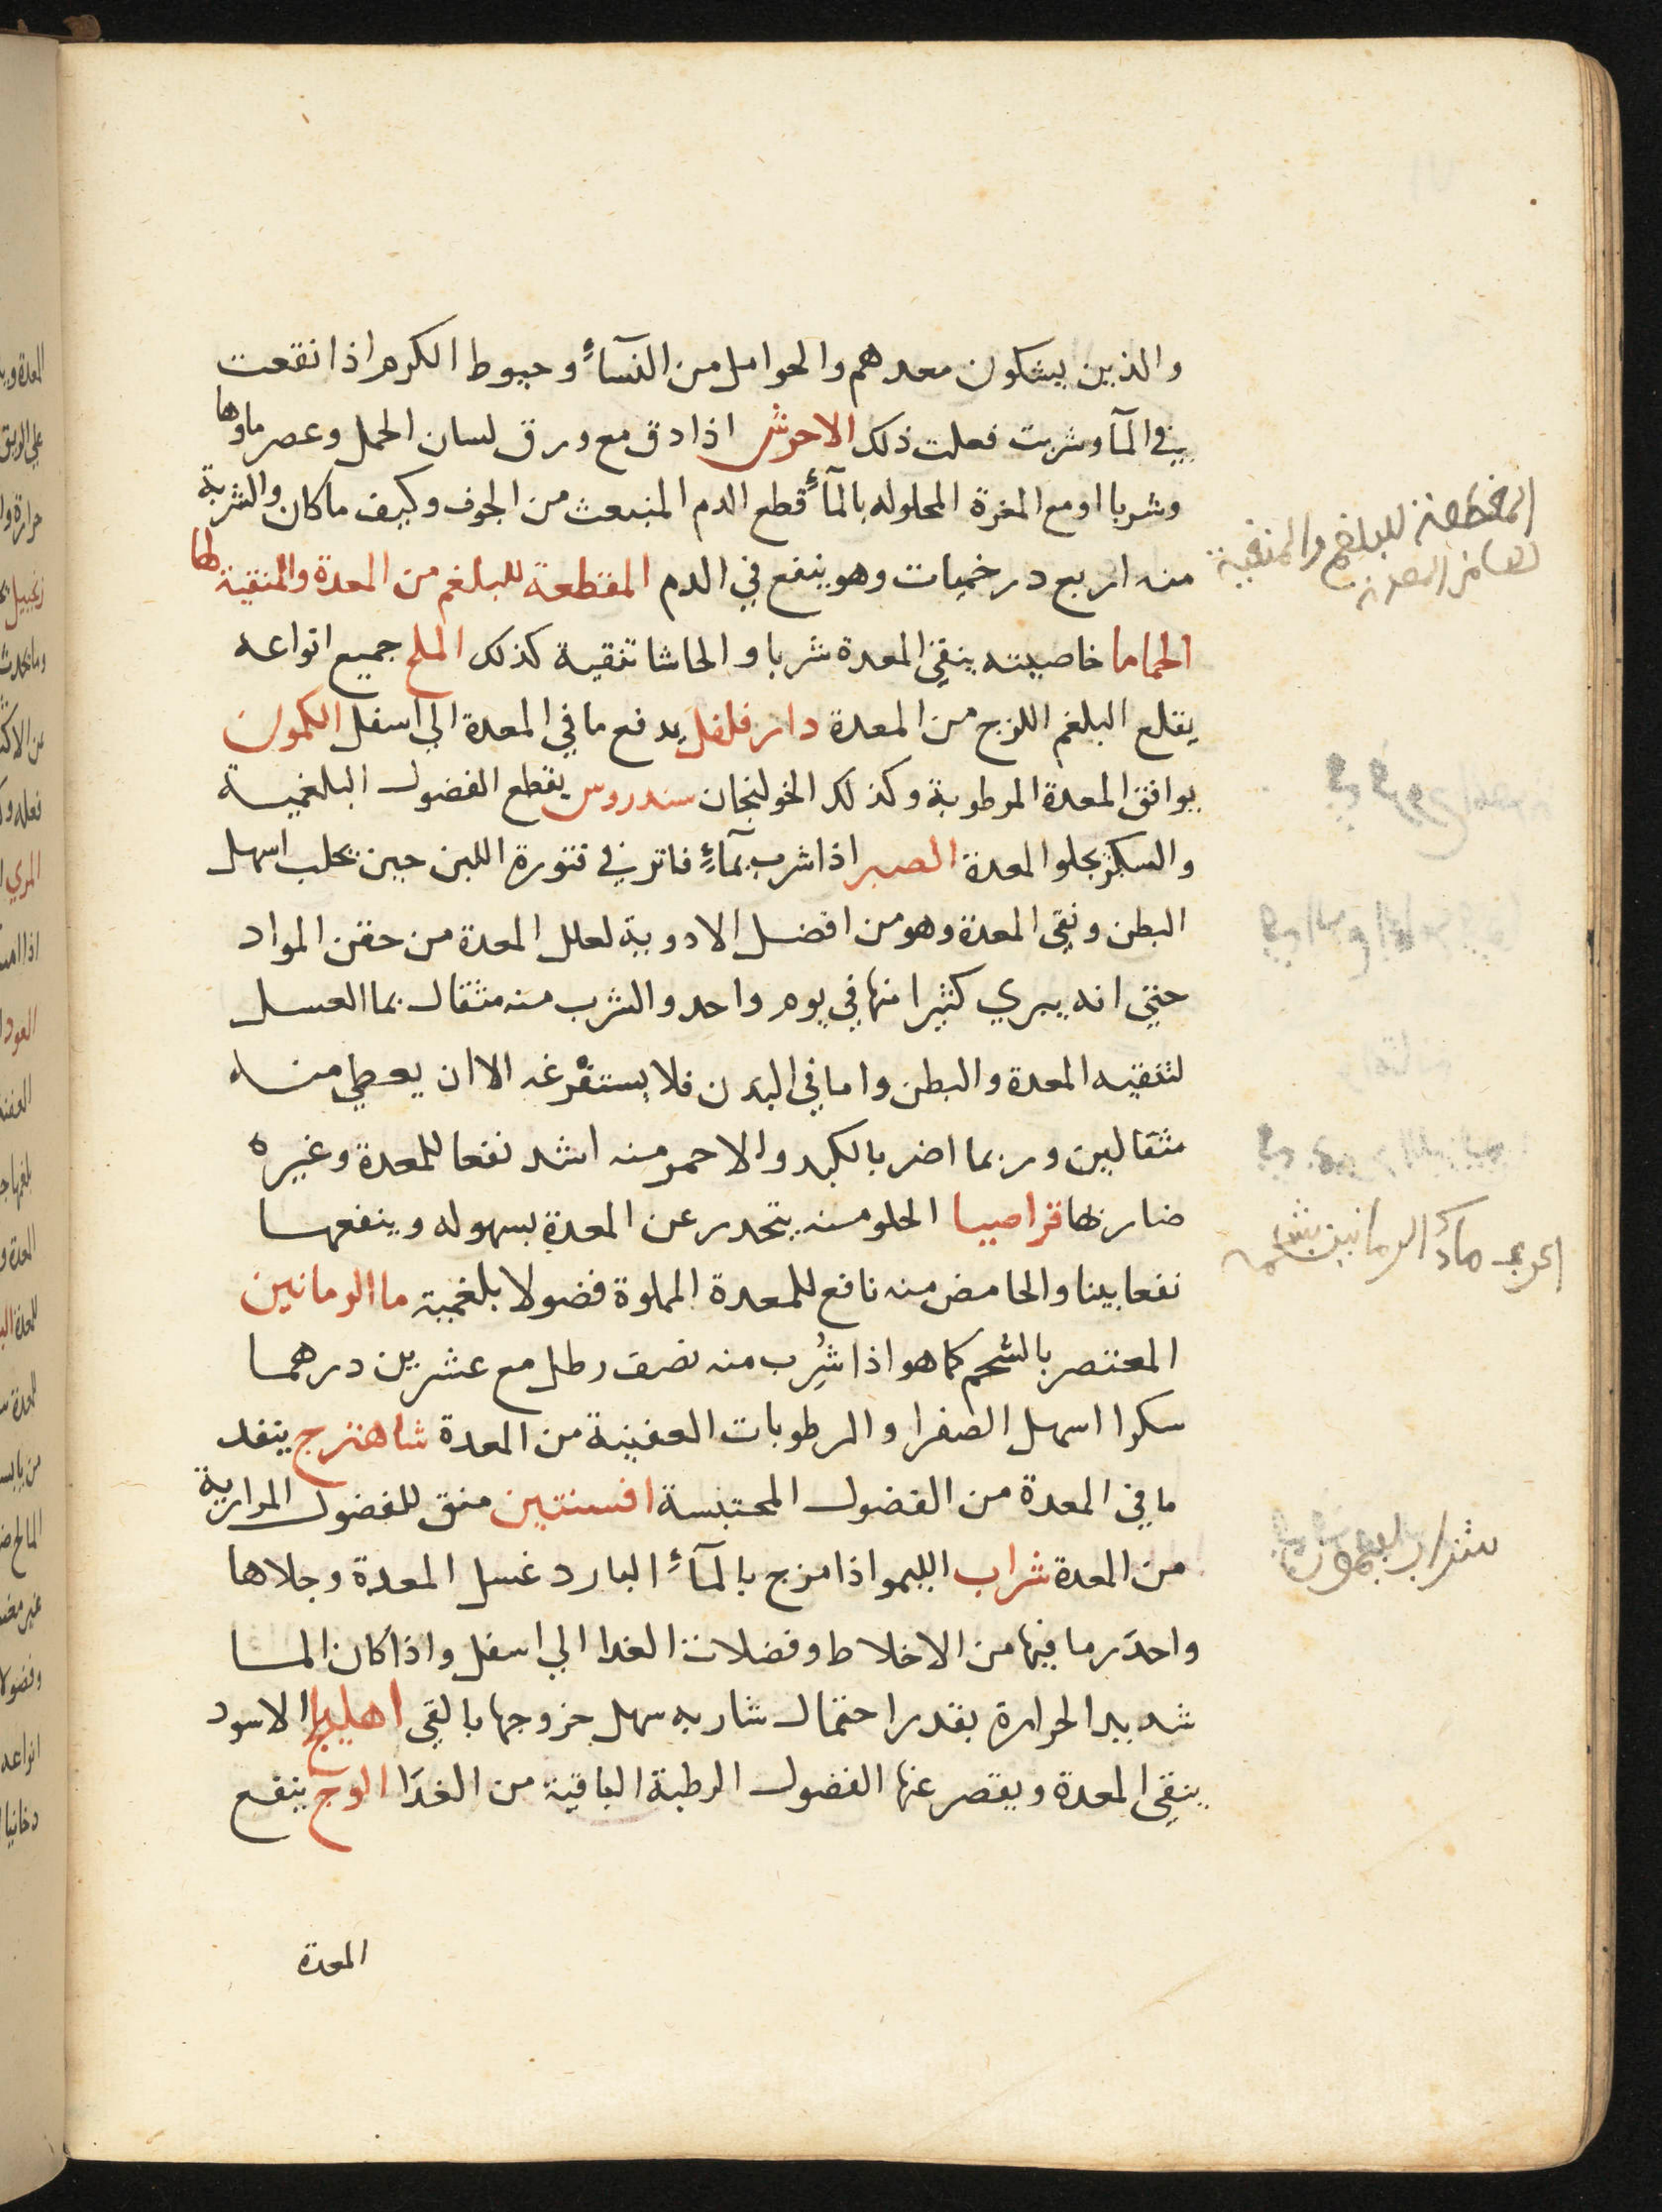 والذين يشكون معدهم والحوامل من النسآءِ وخيوط الكرم اذا نقعت
في المآ وشربت فعلت ذلك الاحوش اذا دق مع ورق لسان الحمل وعصر ماوها
وشربا او مع المغرة المحلوله بالمآءِ قطع الدم المنبعث من الجوف وكيف ما كان والشربة
منه اربع درخميات وهو ينفع في الدم المقطعة للبلغم من المعدة والمنقية لها
الحماما خاصيته ينقي المعدة شربا والحاشا تنقية كذلك الملح جميع انواعه
يقلع البلغم اللزج من المعدة دار فلفل يدفع ما في المعدة الي اسفل الكمون
يوافق المعدة المرطوبة وكذلك الخولنجان سندروس يقطع الفضول البلغمية
والسكر يجلو المعدة الصبر اذا شرب بمآءٍ فاتر في فتورة اللبن حين يحلب اسهل
البطن ونقي المعدة وهو من افضل الادوية لعلل المعدة من حقن المواد
حتي انه يبري كثيرا منها في يوم واحد والشرب منه مثقال بما العسل
لتنقيه المعدة والبطن واما في البدن فلا يستفرغه الا ان يعطي منه
مثقالين وربما اضر بالكبد والاحمر منه اشد نفعا للمعدة وغيره
ضار لها قراصيا الحلو منه يتحدر عن المعدة بسهوله وينفعها
نفعا بينا والحامض منه نافع للمعدة المملوة فضولا بلغمية ما الرمانين
المعتصر بالشحم كما هو اذا شُرِب منه نصف رطل مع عشرين درهما
سكرا اسهل الصفرا والرطوبات العفينة من المعدة شاهترج ينفد
ما في المعدة من الفضول المحتبسة افسنتين منق للفضول المرارية
من المعدة شراب الليمو اذا مزج بالمآءِ البارد غسل المعدة وجلاها
واحدر ما فيها من الاخلاط وفضلات الغدا الي اسفل واذا كان الما
شديد الحرارة بقدر احتمال شاربه سهل خروجها بالقي اهليلج الاسود
ينقي المعدة ويقصر عنها الفضول الرطبة الباقية من الغدَا الوج ينفع
المعدة
المقطعة للبلغم والمنقية
لها من المعدة
ماء الرمانين بشحمه
شراب الليمون